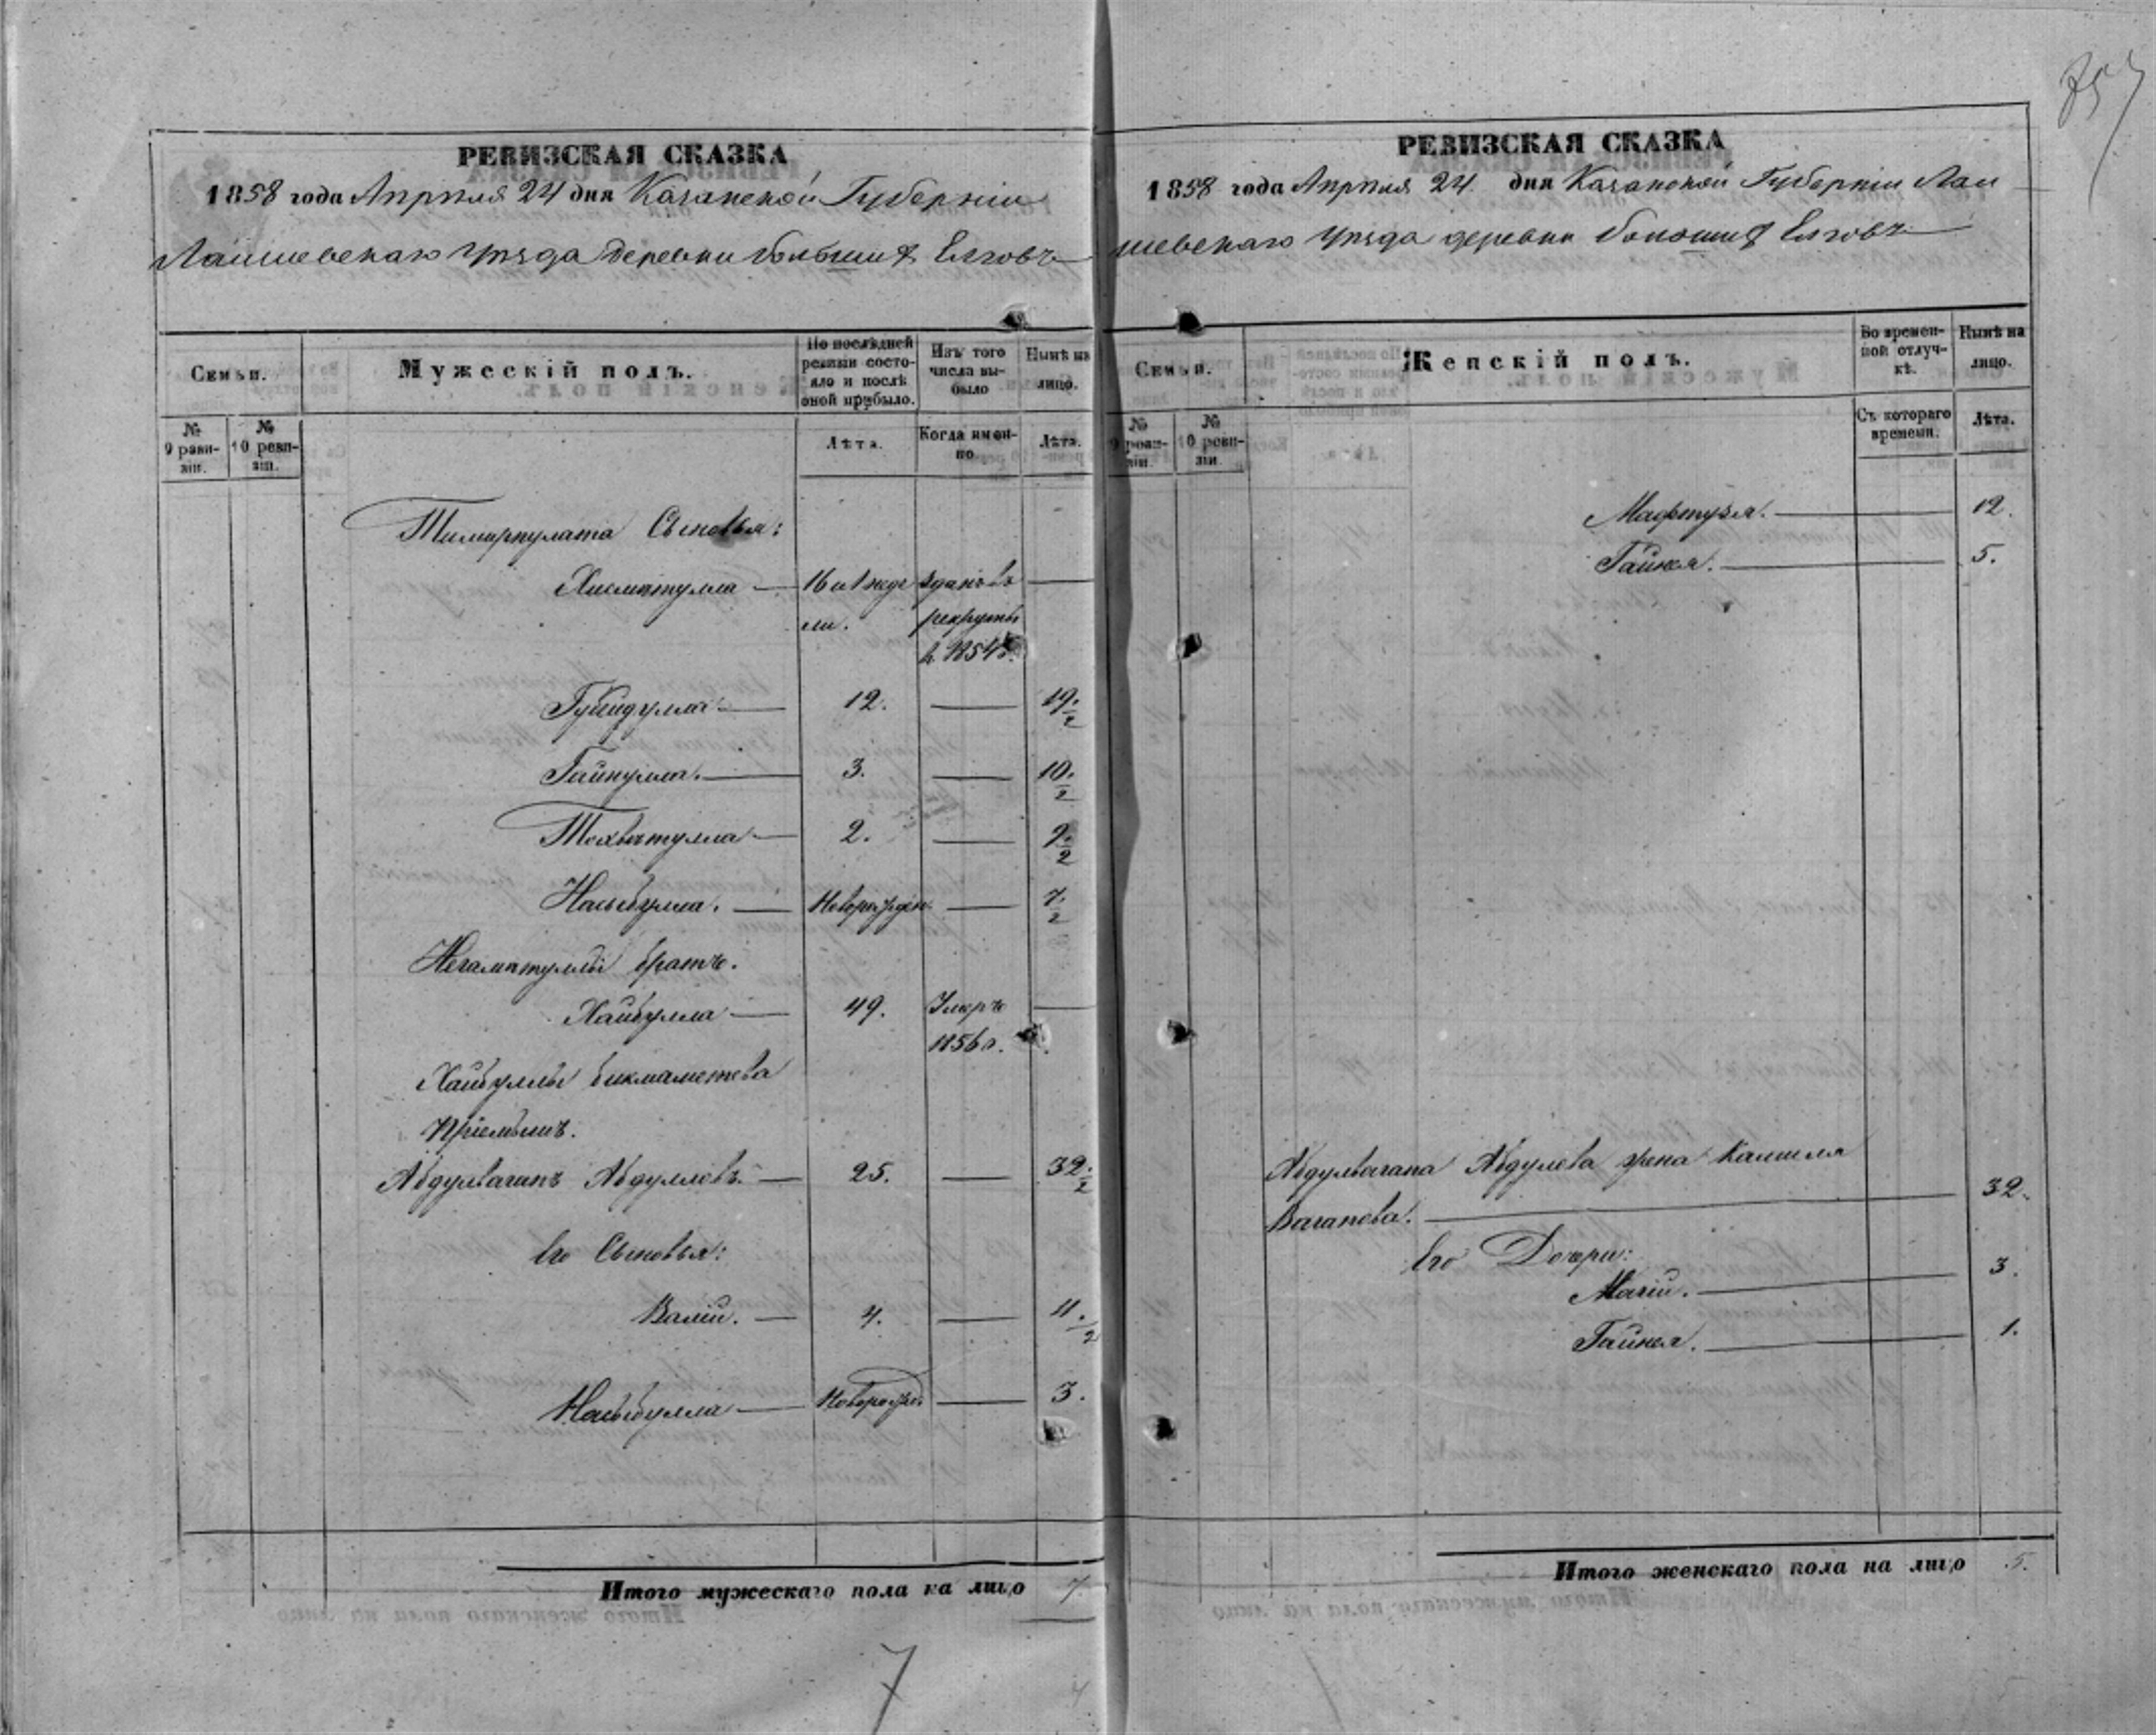 857
РЕВИЗСКАЯ СКАЗКА
1858 года Апрѣля 24 дня Казанской Губерніи
Лаишевскаго Уѣзда деревни большихъ Елговъ
Семьи.
Мужескій полъ.
По послѣдней ревизіи состояло и послѣ оной прибыло.
Изъ того числа выбыло
Нынѣ на лицо.
№ 9 ревизіи.
№ 10 ревизіи.
Лѣта.
Когда именно
Лѣта.
Тимирпулата Сыновья:
Хисматулла — 16 и 1 неде зданъ въ —
ли. рекруты
в 1854 г.
Губидулла — 12. — 19. 2
Гайнулла. — 3. — 10. 2
Тохватулла — 2. — 9. 2
Насыбулла. — Новорожден. — 7. 2
Негаматуллы братъ.
Хайбулла — 49. Умеръ —
1856 г.
Хайбуллы бикмаметева
пріемышъ.
Абдулвагапъ Абдулловъ. — 25. — 32. 2
Его Сыновья:
Валій. — 4. — 11. 2
Насыбулла — Новорожд. — 3.
Итого мужескаго пола на лицо 7.
7
РЕВИЗСКАЯ СКАЗКА
1858 года Апрѣля 24 дня Казанской Губерніи Лаи
шевскаго Уѣзда деревни большихъ Елговъ
Семьи.
Женскій полъ.
Во временной отлучкѣ.
Нынѣ на лицо.
№ 9 ревизіи.
№ 10 ревизіи.
Съ котораго времени.
Лѣта.
Мафтузя. — 12.
Гайния. — 5.
Абдулвагапа Абдулева жена Камиля
Вагапова. — 32.
Его Дочери:
Магiй. — 3.
Гайния. — 1.
Итого женскаго пола на лицо 5.